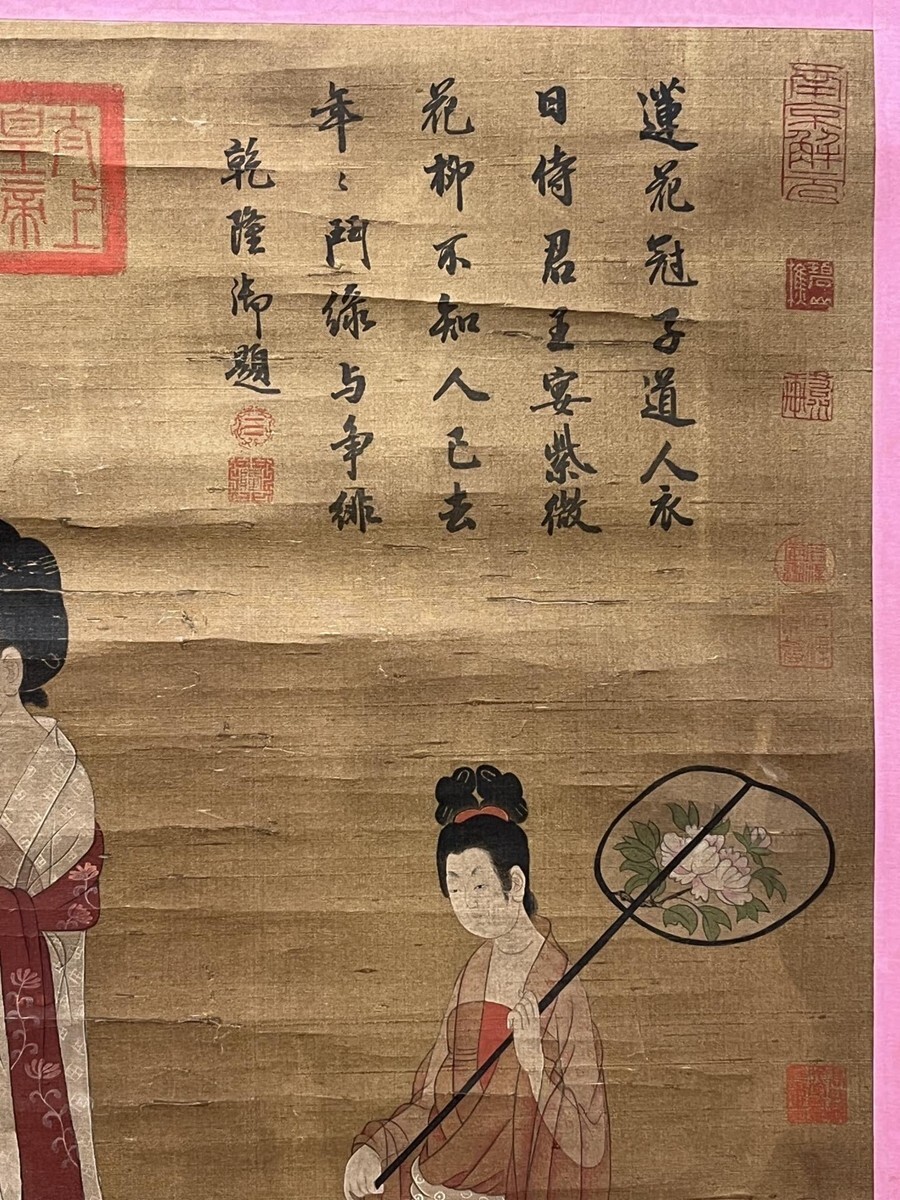 蓮花冠子道人衣
日侍君王宴紫微
花柳不知人已去
年〻鬥綠与爭緋
乾隆御題
太上皇帝